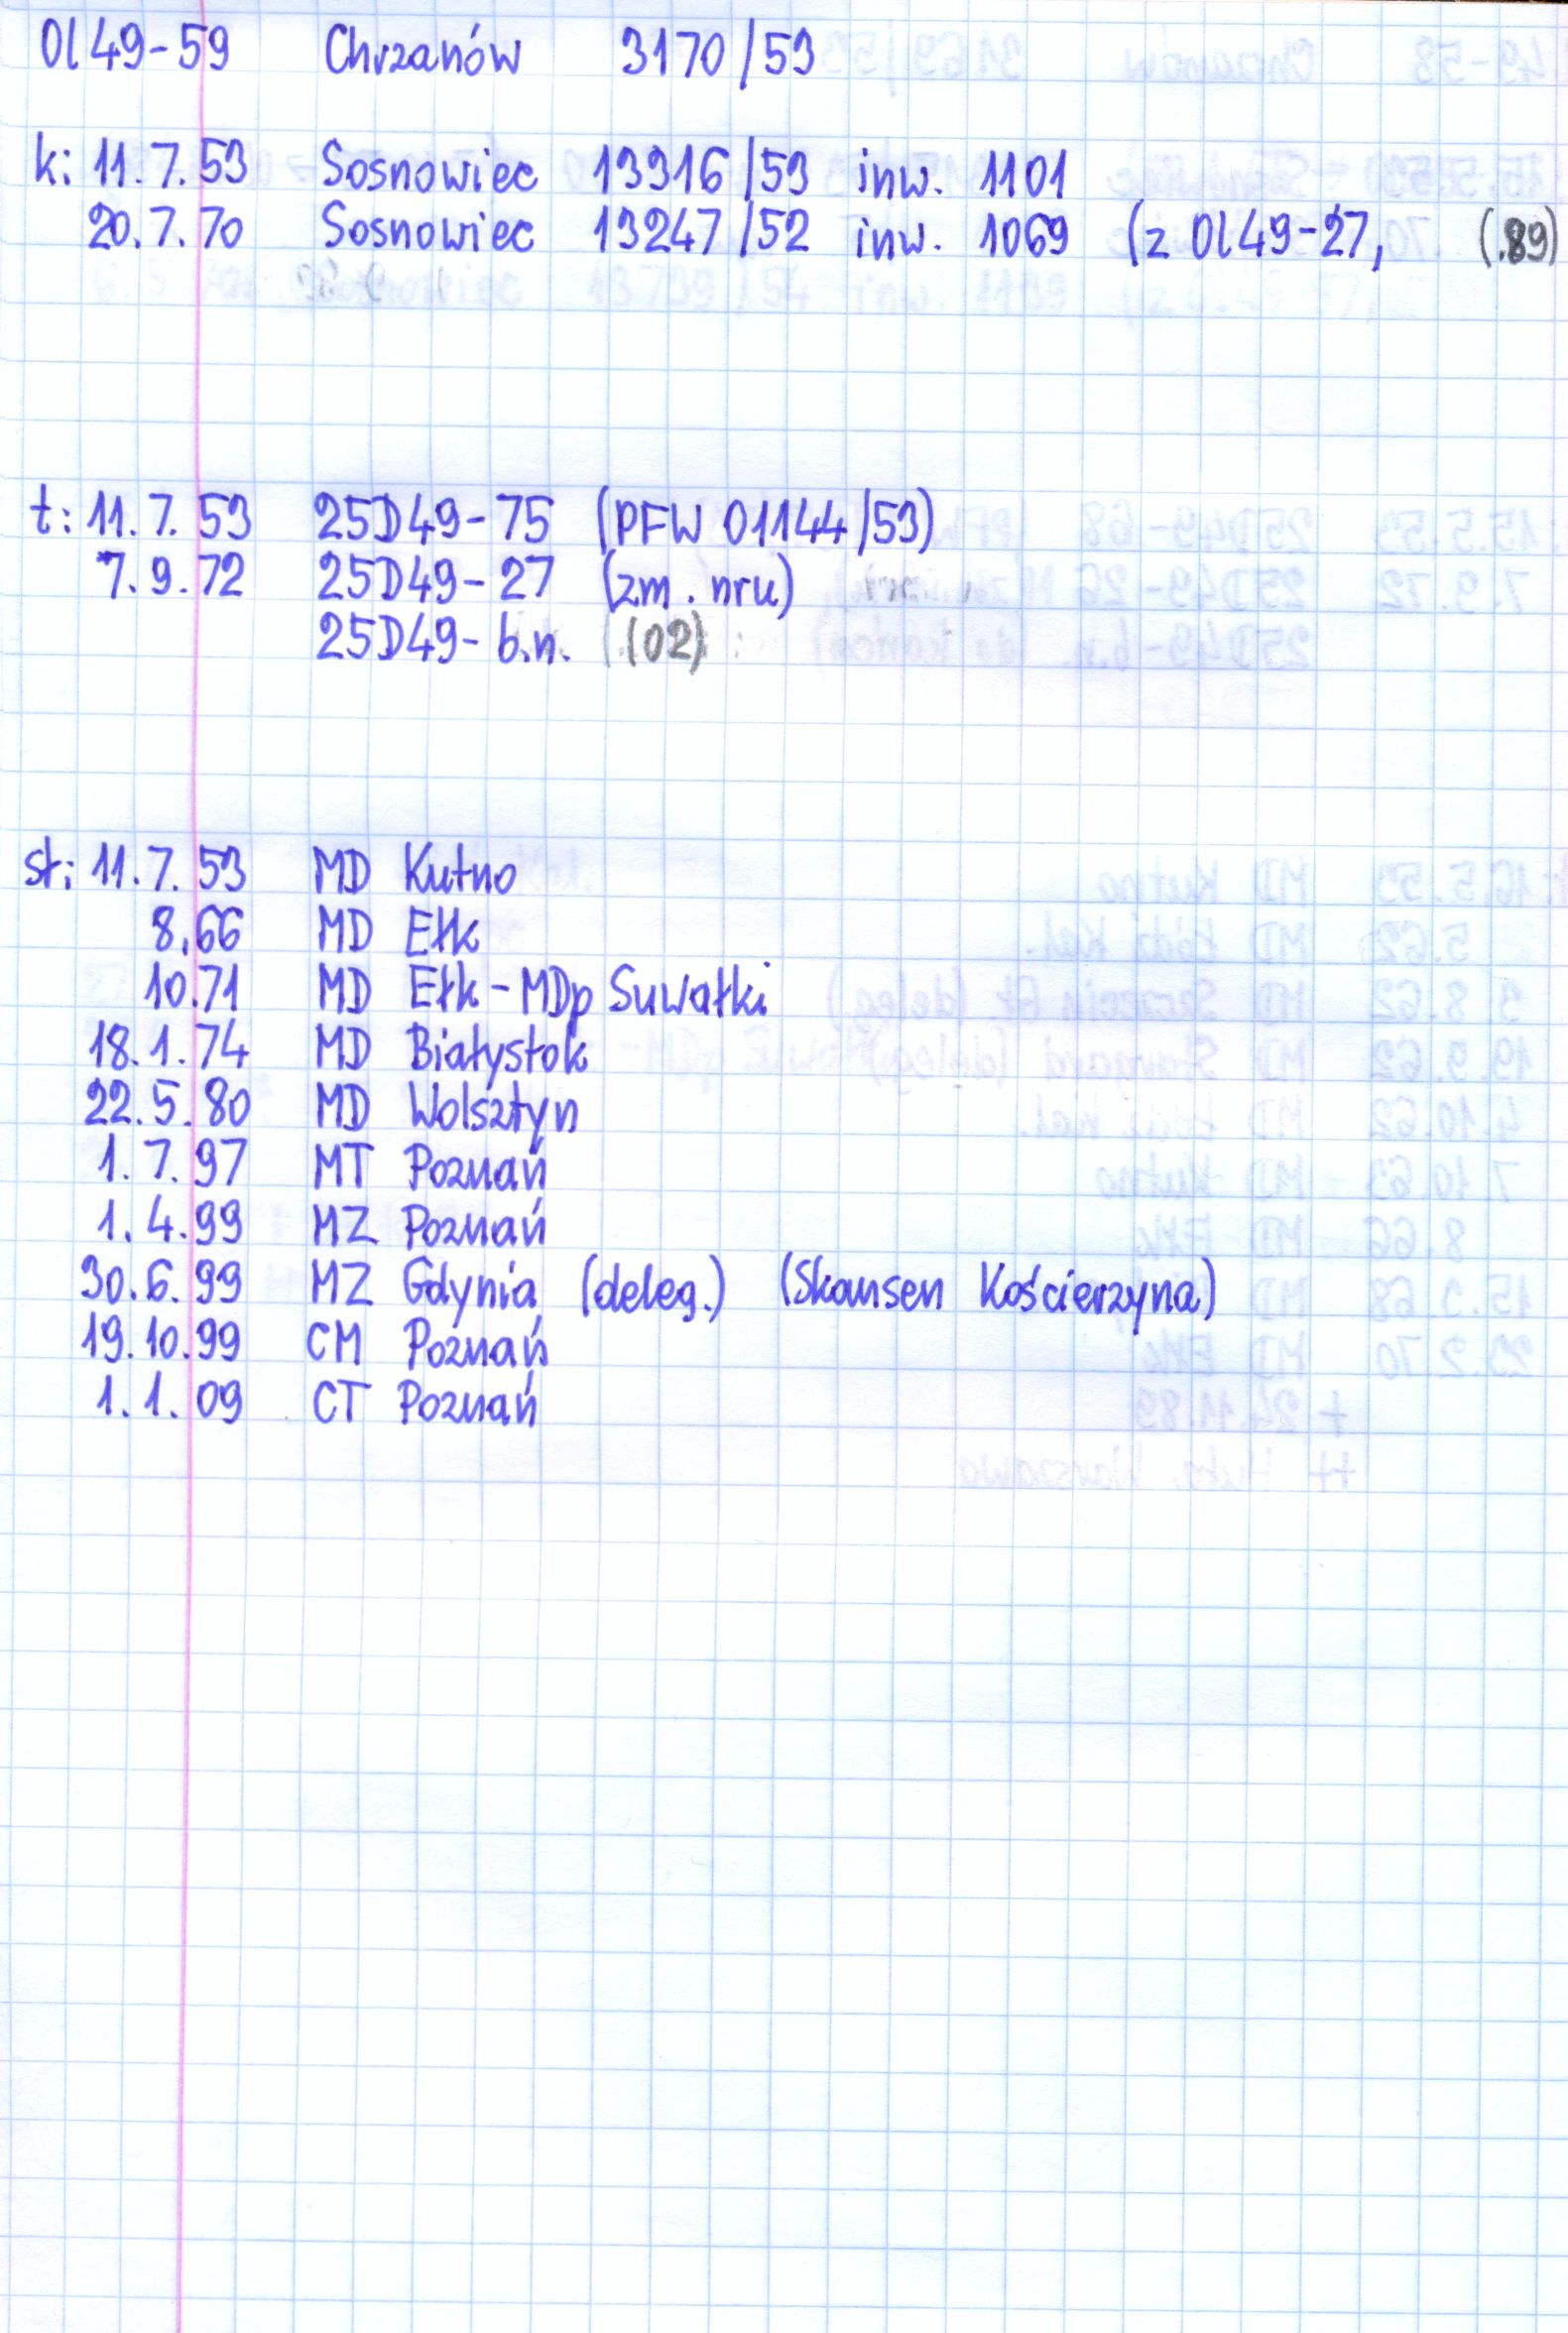 Ol49-59 Chrzanów 3170/53
k: 11.7.53 Sosnowiec 13316/53 inw. 1101
20.7.70 Sosnowiec 13247/52 inw. 1069 (z Ol49-27, (.89)
t: 11.7.53 25D49-75 (PFW 01144/53)
7.9.72 25D49-27 (zm. nru)
25D49-b.n. (02)
st: 11.7.53 MD Kutno
8.66 MD Ełk
10.71 MD Ełk-MDp Suwałki
18.1.74 MD Białystok
22.5.80 MD Wolsztyn
1.7.97 MT Poznań
1.4.99 MZ Poznań
30.6.99 MZ Gdynia (deleg.) (Skansen Kościerzyna)
19.10.99 CM Poznań
1.1.09 CT Poznań